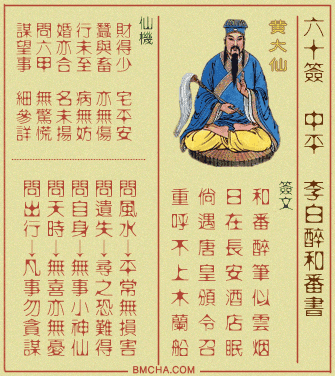 六十簽 中平 李白醉和番書
黄大仙
簽文
和番醉筆似雲烟
日在長安酒店眠
倘遇唐皇頒令召
重呼不上木蘭船
仙機
財得少 宅平安
蠶與畜 亦無傷
行未至 病無妨
婚亦合 名未揚
問六甲 無驚慌
謀望事 細參詳
問風水→平常無損害
問遺失→尋之恐難得
問自身→無事小神仙
問天時→無喜亦無憂
問出行→凡事勿貪謀
BMCHA.COM